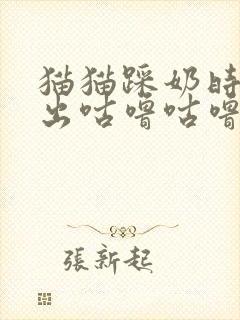 猫猫踩奶时
出咕噜咕噜
張新起